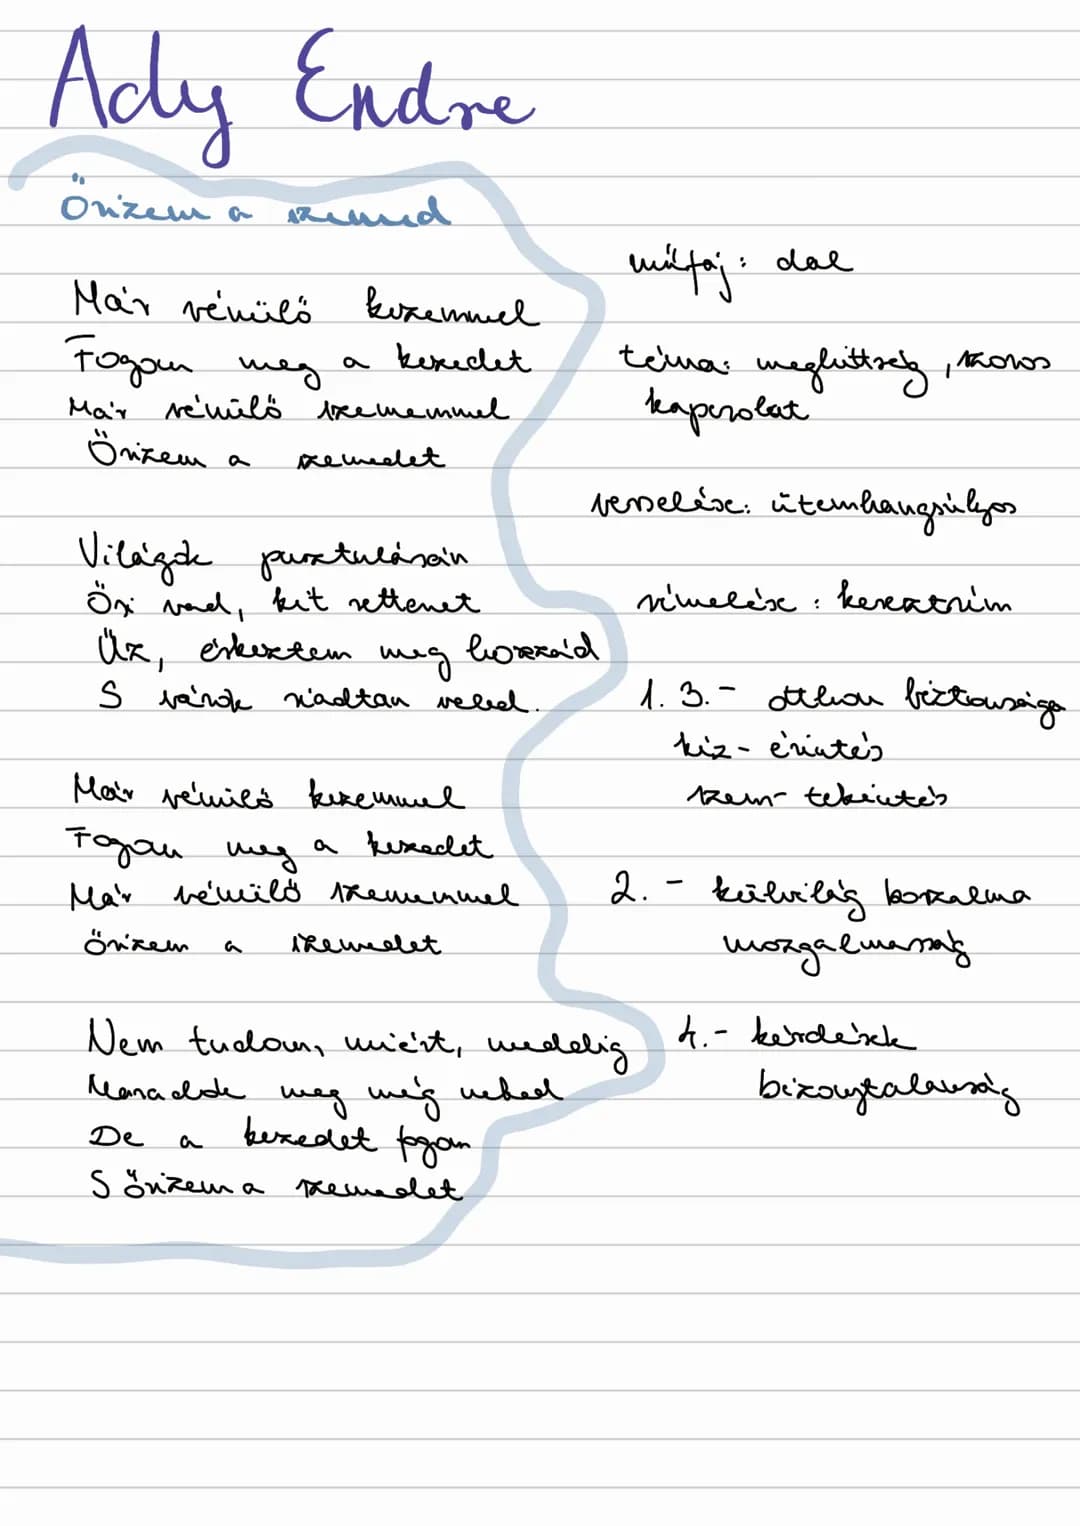 Ady Endre
Őrizem a szemed
Már vénülő kezemmel
Fogom meg a kezedet
Már vénülő szememmel
Őrizem a szemedet
Világok pusztulásán
Ősi vad, kit rettenet
Űz, érkeztem meg hozzád
S várok riadtan veled.
Már vénülő kezemmel
Fogom meg a kezedet
Már vénülő szememmel
őrizem a szemedet
Nem tudom, miért, meddig
Maradok meg még neked
De a kezedet fogom
S őrizem a szemedet
műfaj: dal
téma: meghittség, szoros
kapcsolat
verselése: ütemhangsúlyos
rímelése: keresztrím
1. 3. - otthon biztonsága
kéz - érintés
szem - tekintés
2. - külvilág borzalma
mozgalmasság
4. - kérdések
bizonytalanság